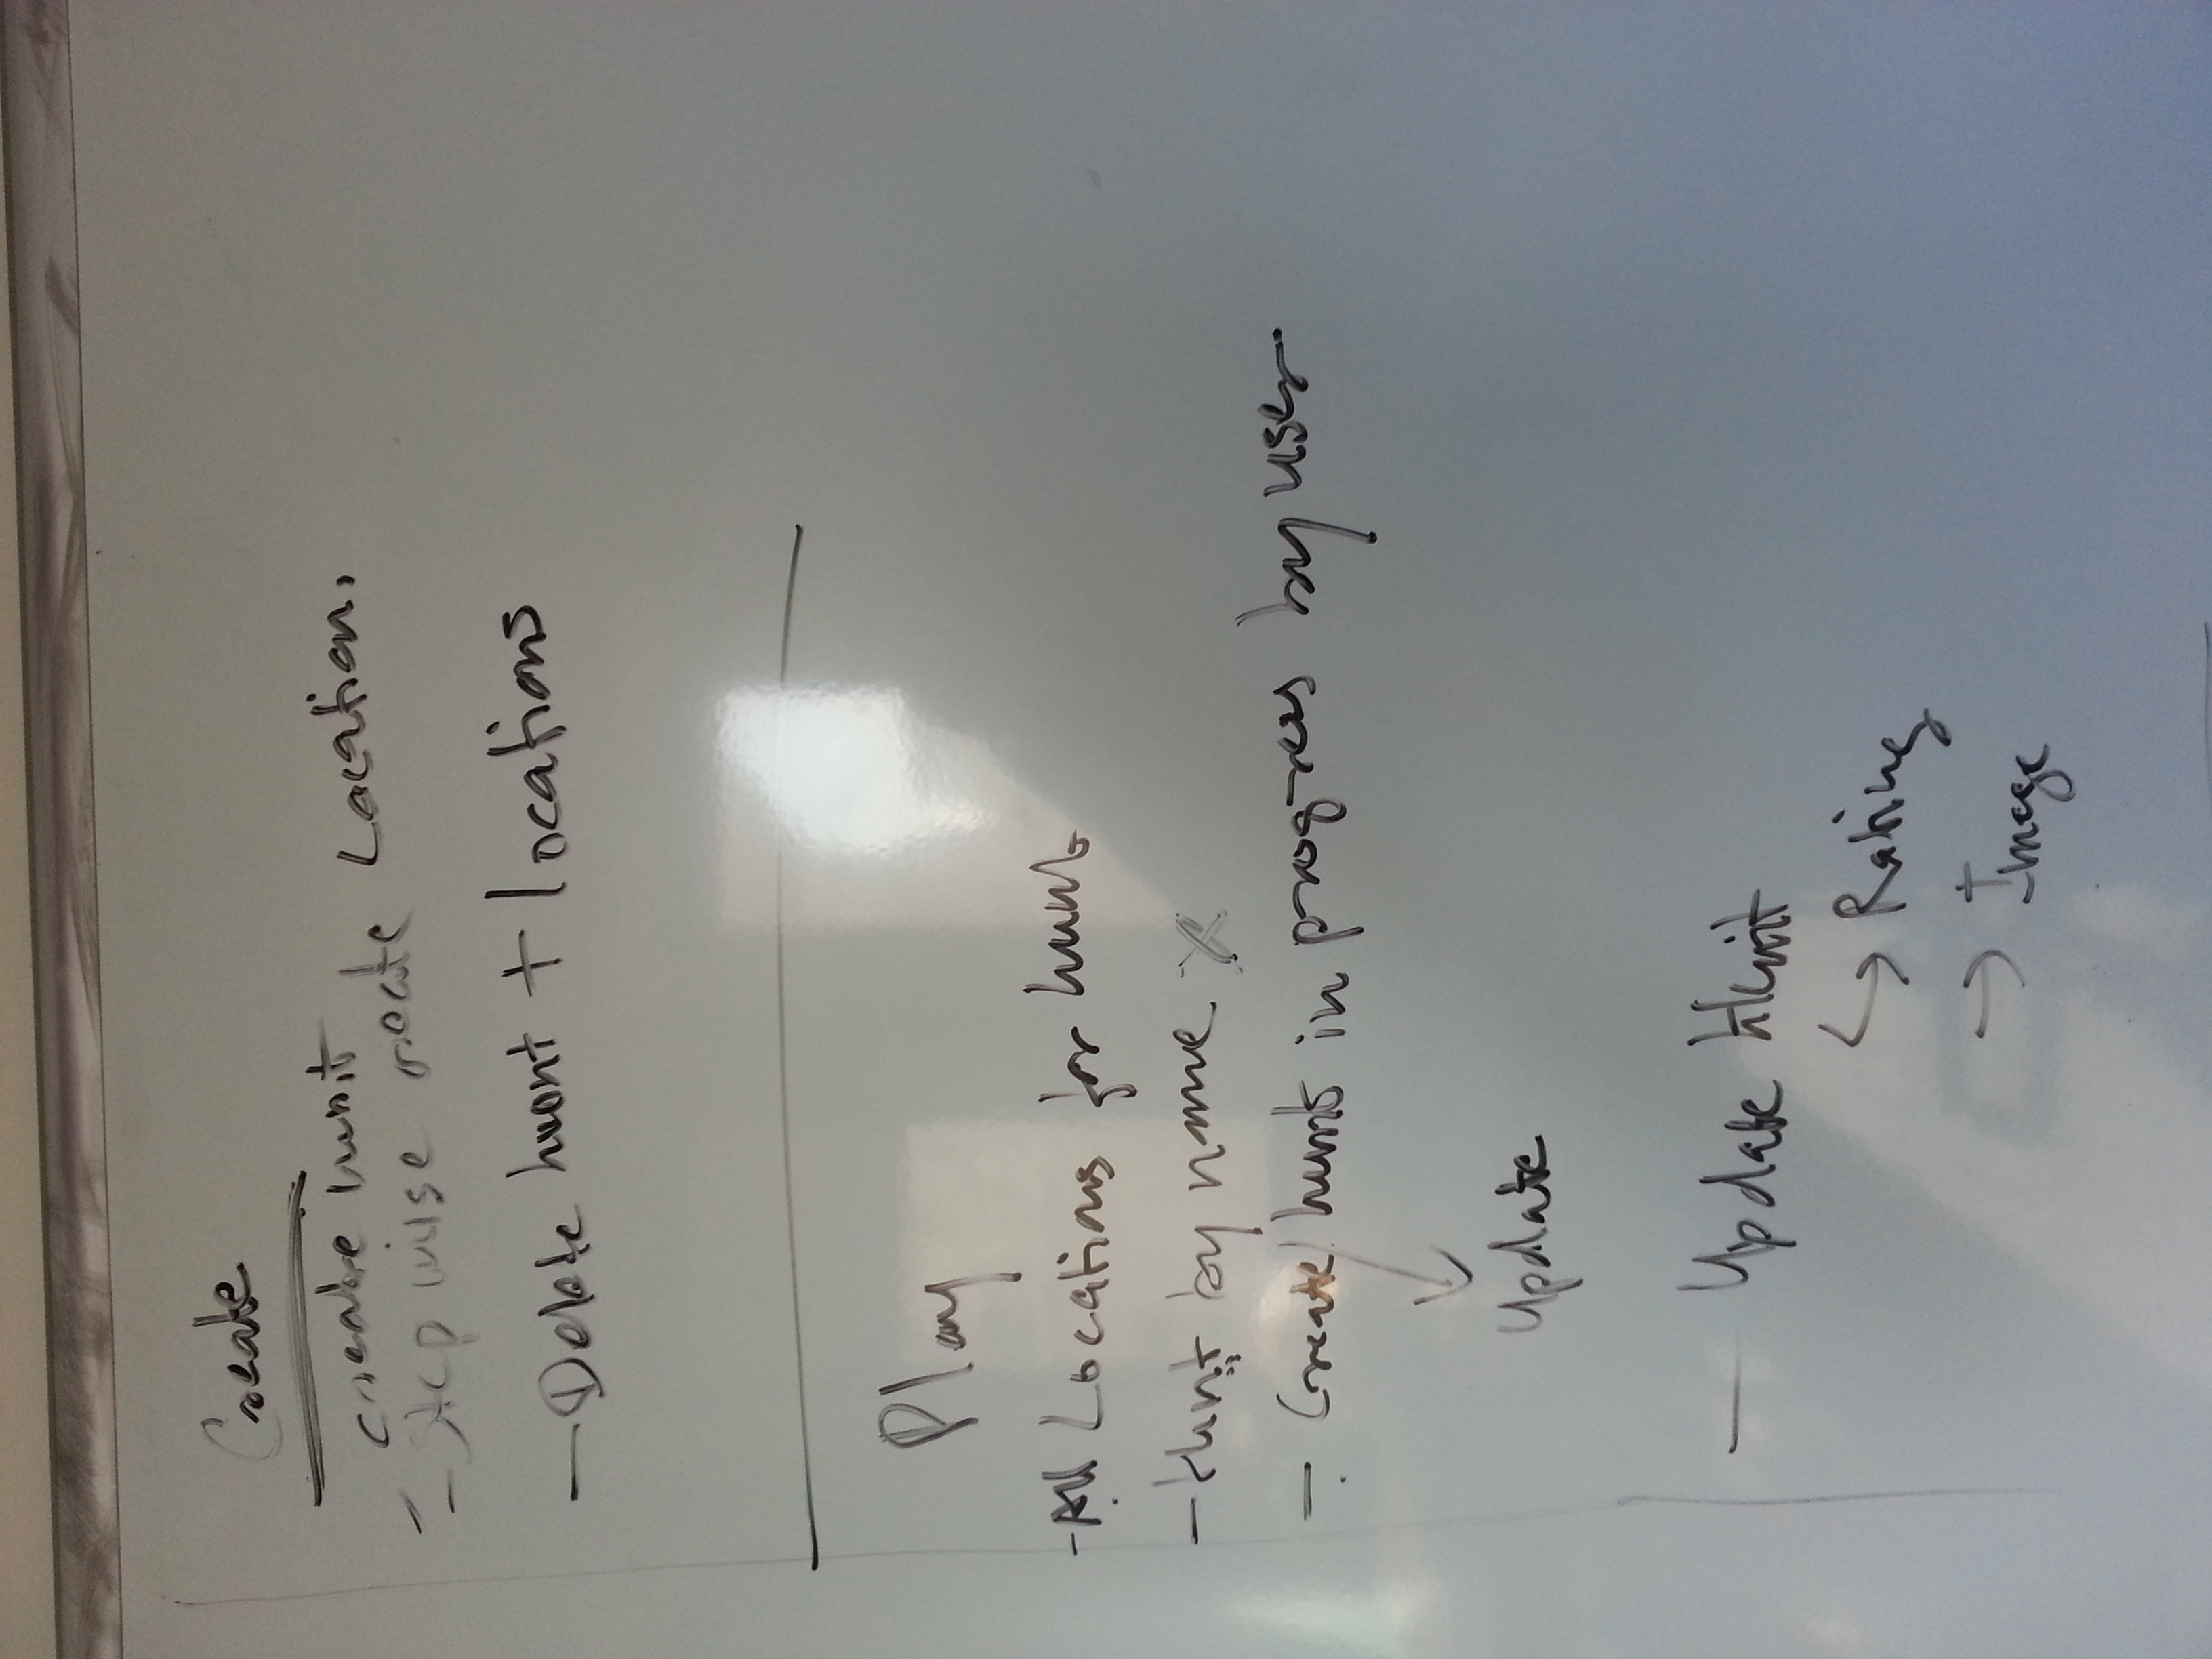 Create
create hunt
- Stepwise create Location.
- Delete hunt + locations
Play
- All Locations for hunt
- Hunt by name X
- Create/hunt in progress by user.
Update
- Update Hunt
→ Rating
→ Image